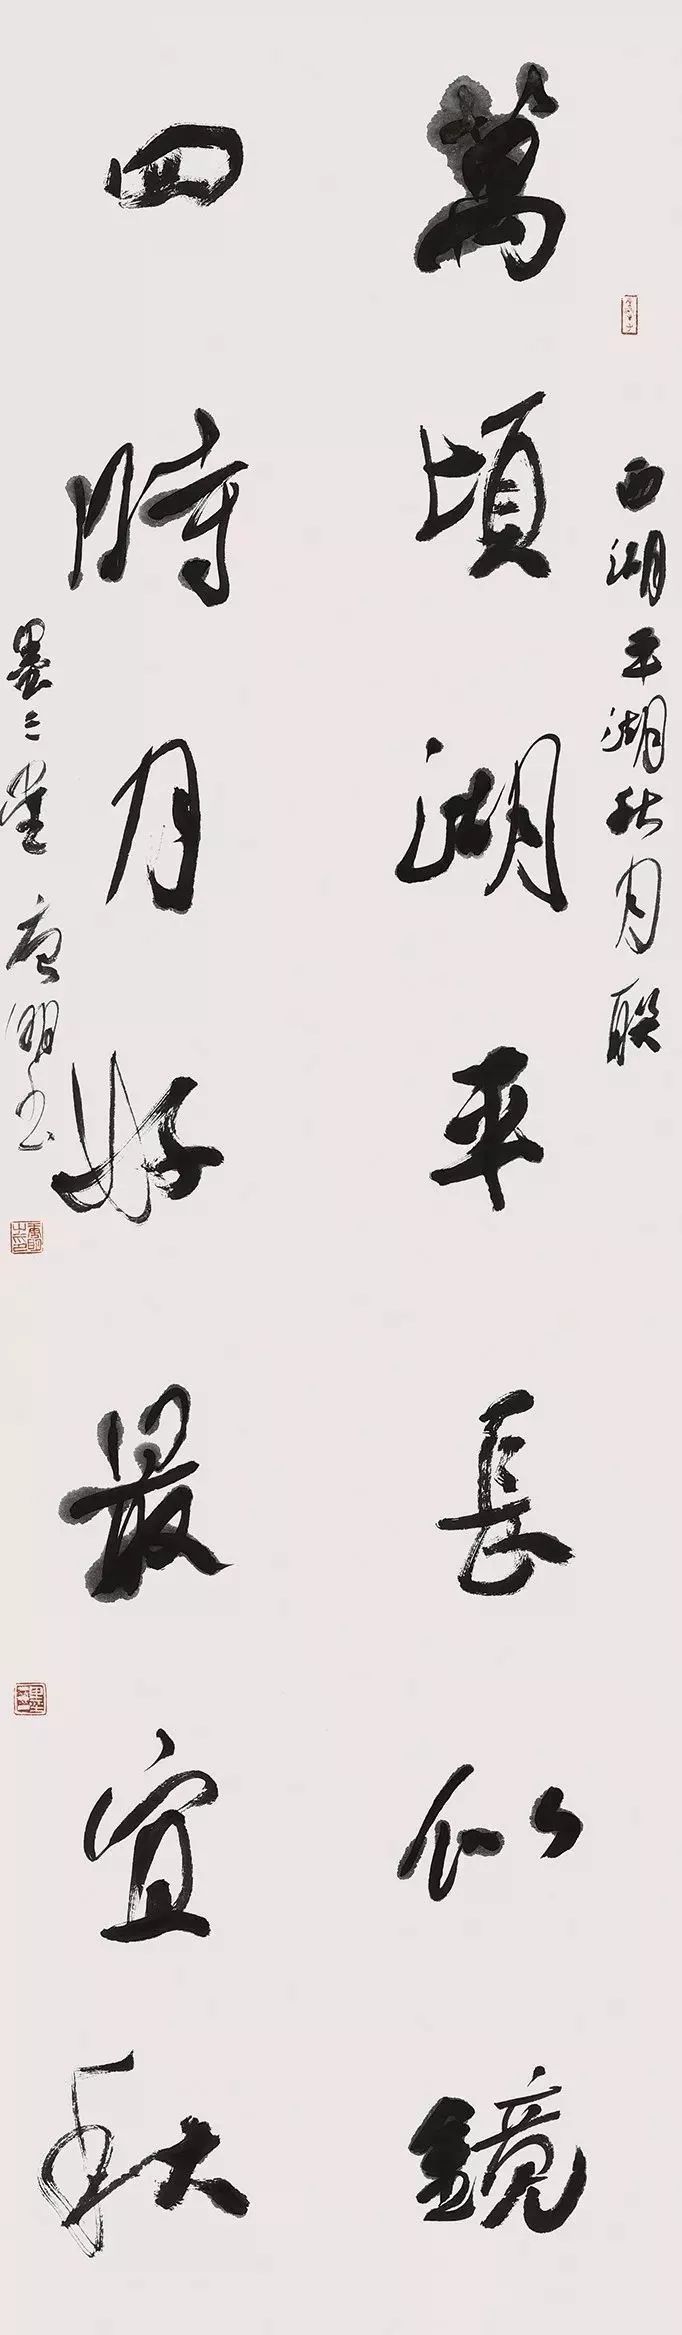 西湖平湖秋月联
萬頃湖平長似鏡
四時月好最宜秋
墨二堂唐明書